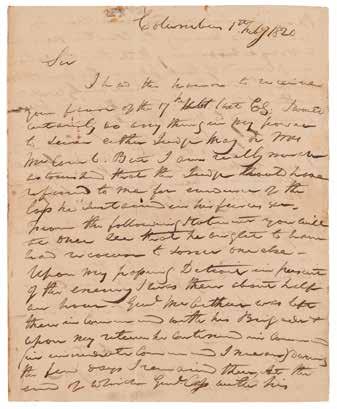 Columbus 1st July 1820
Sir
I had the honor to receive
your favor of the 17th Ult last Eg. I would
certainly do any thing in my power
to serve either Judge May or Mrs
McComb. But I am really much
astonished that the Judge should have
refered to me for evidence of the
loss he sustained in his fences &c
from the following Statement you will
at once see that he ought to have
had recourse to some one else -
Upon my passing Detroit in pursuit
of the enemy I was there about half
an hour Genl McArthur was left
there in command with his Brigade &
upon my return he continued in command
(in immediate Command I mean) during
the few days I remained there, at the
end of which Genl Cass with his